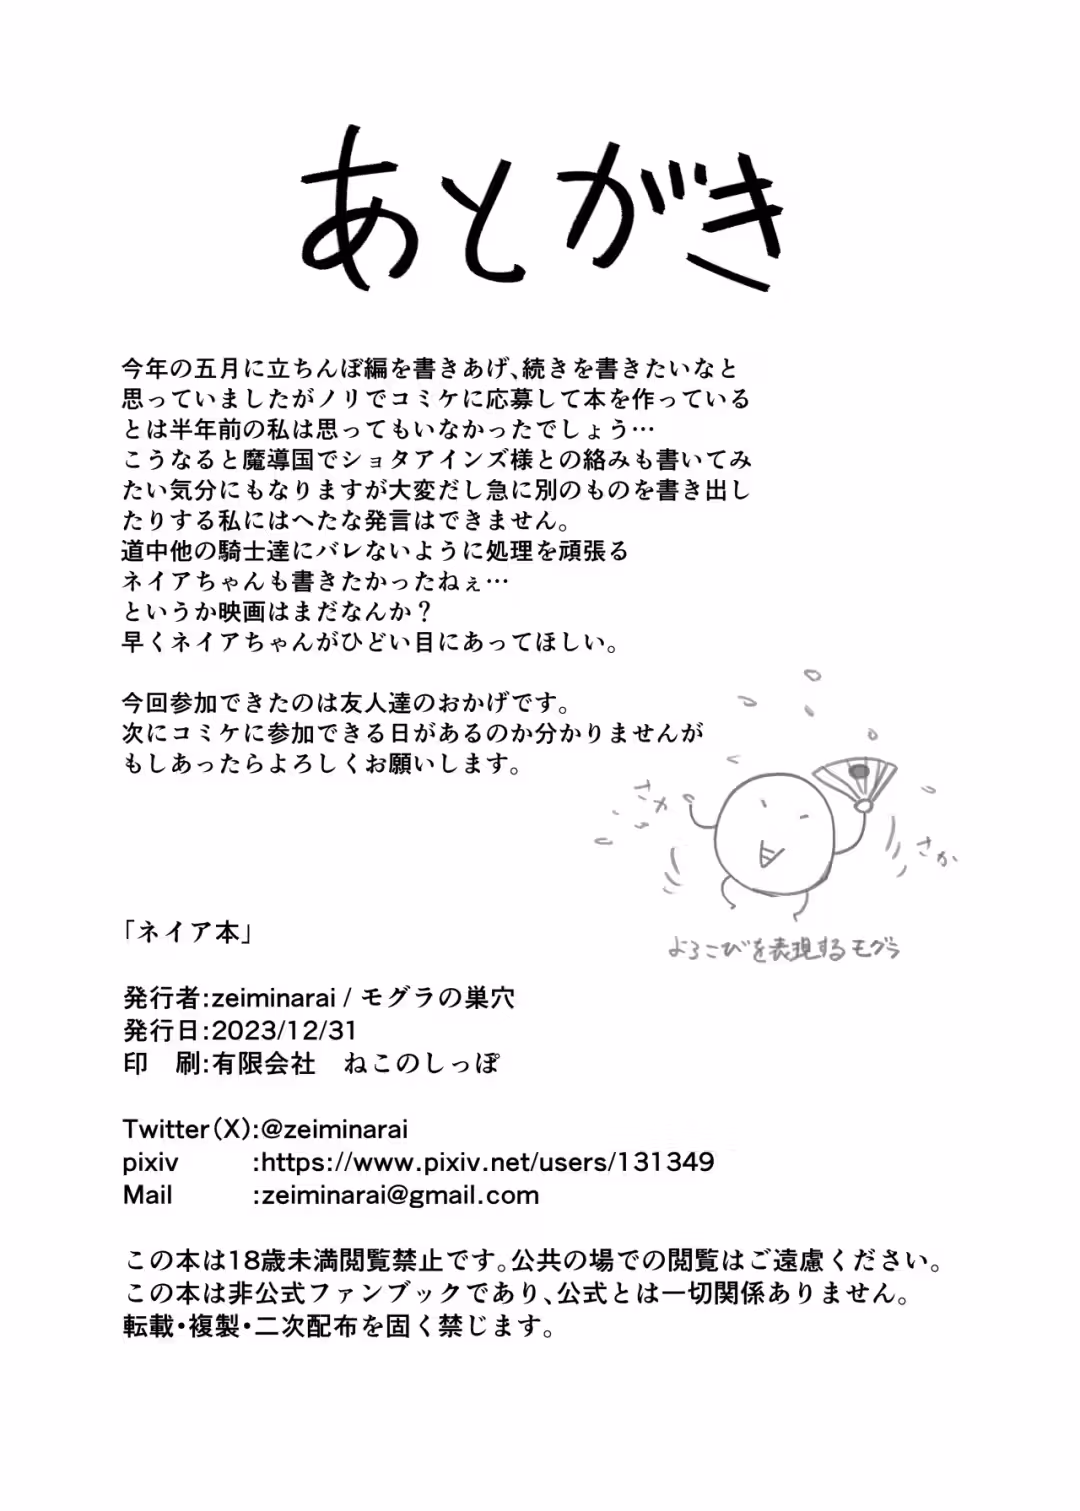 あとがき
今年の五月に立ちんぼ編を書きあげ、続きを書きたいなと
思っていましたがノリでコミケに応募して本を作っている
とは半年前の私は思ってもいなかったでしょう…
こうなると魔導国でショタアインズ様との絡みも書いてみ
たい気分にもなりますが大変だし急に別のものを書き出し
たりする私にはへたな発言はできません。
道中他の騎士達にバレないように処理を頑張る
ネイアちゃんも書きたかったねぇ…
というか映画はまだなんか？
早くネイアちゃんがひどい目にあってほしい。
今回参加できたのは友人達のおかげです。
次にコミケに参加できる日があるのか分かりませんが
もしあったらよろしくお願いします。
さか
さか
よろこびを表現するモグラ
「ネイア本」
発行者:zeiminarai / モグラの巣穴
発行日:2023/12/31
印　刷:有限会社　ねこのしっぽ
Twitter(X):@zeiminarai
pixiv :https://www.pixiv.net/users/131349
Mail :zeiminarai@gmail.com
この本は18歳未満閲覧禁止です。公共の場での閲覧はご遠慮ください。
この本は非公式ファンブックであり、公式とは一切関係ありません。
転載・複製・二次配布を固く禁じます。